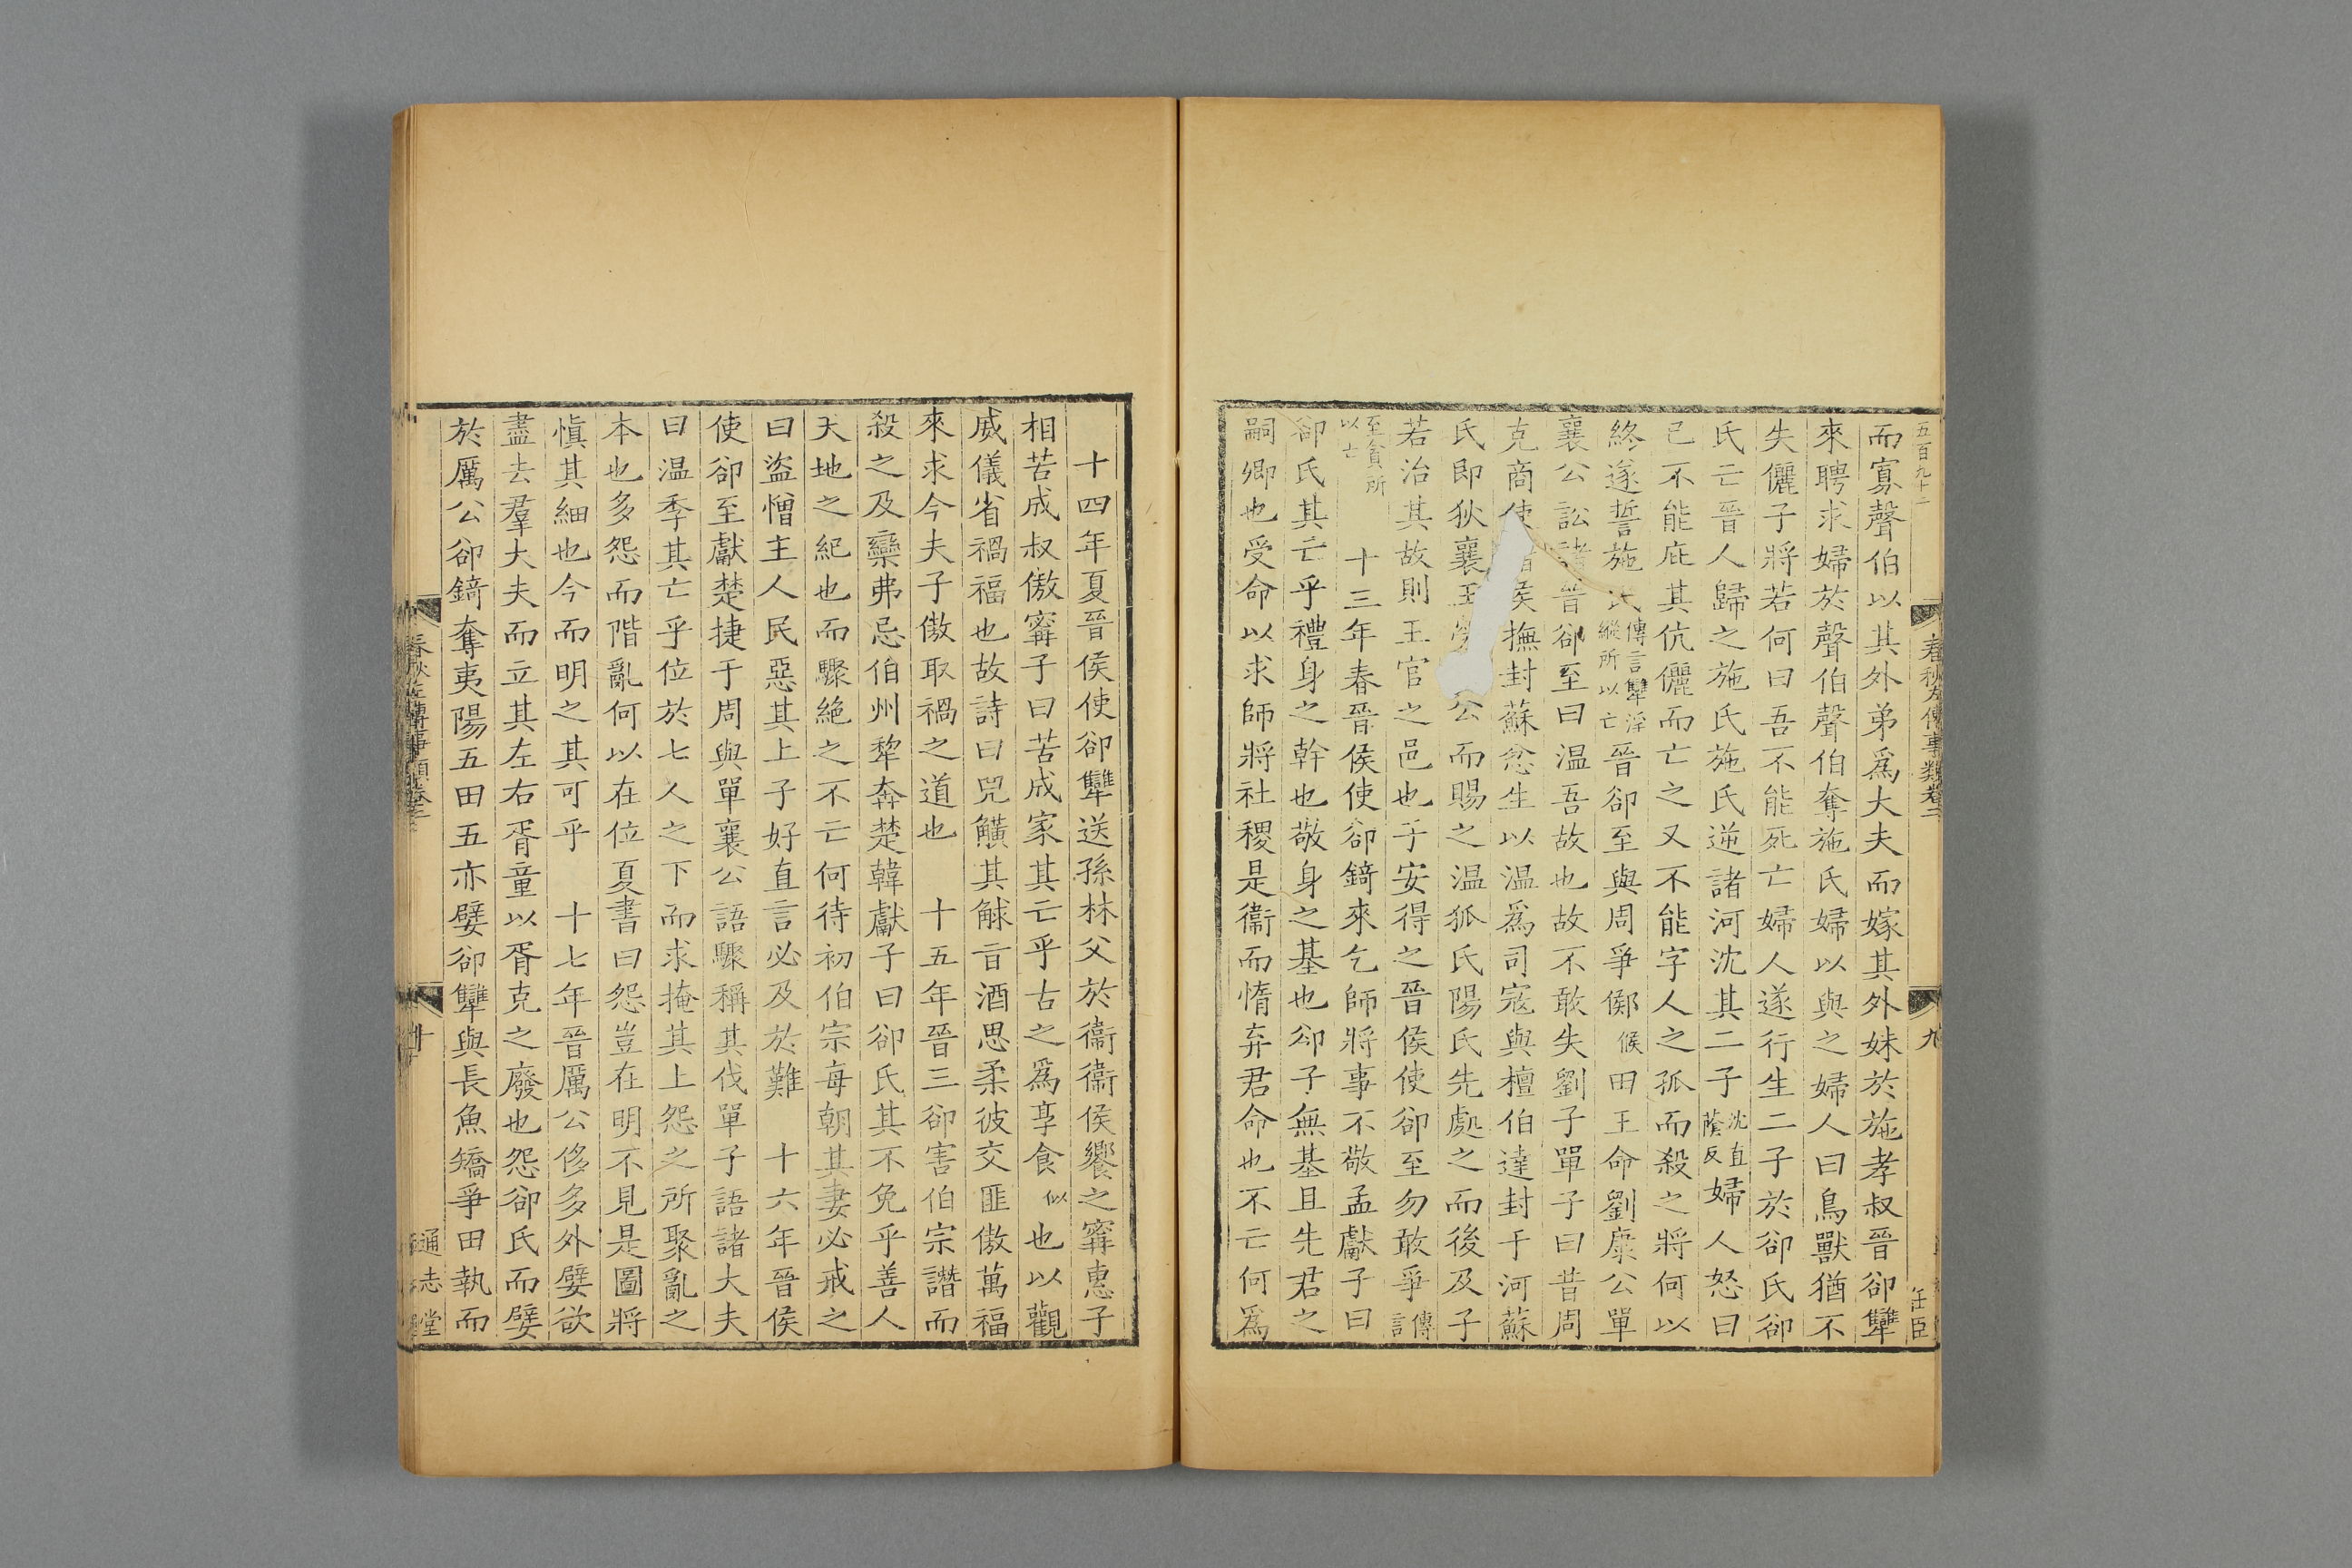 五百九十二
春秋左傳事類卷二
九
而寡聲伯以其外弟爲大夫而嫁其外妹於施孝叔晉郤犨
來聘求婦於聲伯聲伯奪施氏婦以與之婦人曰鳥獸猶不
失儷子將若何曰吾不能死亡婦人遂行生二子於郤氏郤
氏亡晉人歸之施氏施氏逆諸河沈其二子沈直蔭反婦人怒曰
已不能庇其伉儷而亡之又不能字人之孤而殺之將何以
終遂誓施氏傳言犨淫縱所以亡晉郤至與周爭鄇候田王命劉康公單
襄公訟諸晉郤至曰温吾故也故不敢失劉子單子曰昔周
克商使諸侯撫封蘇忿生以温爲司寇與檀伯達封于河蘇
氏即狄襄王勞公而賜之温狐氏陽氏先處之而後及子
若治其故則王官之邑也子安得之晉侯使郤至勿敢爭傳言
至貪所以亡 十三年春晉侯使郤錡來乞師將事不敬孟獻子曰
郤氏其亡乎禮身之幹也敬身之基也郤子無基且先君之
嗣卿也受命以求師將社稷是衞而惰弃君命也不亡何爲
十四年夏晉侯使郤犨送孫林父於衞衞侯饗之甯惠子
相苦成叔傲甯子曰苦成家其亡乎古之爲享食似也以觀
威儀省禍福也故詩曰兕觵其觩旨酒思柔彼交匪傲萬福
來求今夫子傲取禍之道也 十五年晉三郤害伯宗譖而
殺之及欒弗忌伯州犂奔楚韓獻子曰郤氏其不免乎善人
天地之紀也而驟絶之不亡何待初伯宗每朝其妻必戒之
曰盜憎主人民惡其上子好直言必及於難 十六年晉侯
使郤至獻楚捷于周與單襄公語驟稱其伐單子語諸大夫
曰温季其亡乎位於七人之下而求掩其上怨之所聚亂之
本也多怨而階亂何以在位夏書曰怨豈在明不見是圖將
愼其細也今而明之其可乎 十七年晉厲公侈多外嬖欲
盡去羣大夫而立其左右胥童以胥克之廢也怨郤氏而嬖
於厲公郤錡奪夷陽五田五亦嬖郤犨與長魚矯爭田執而
十
通志堂